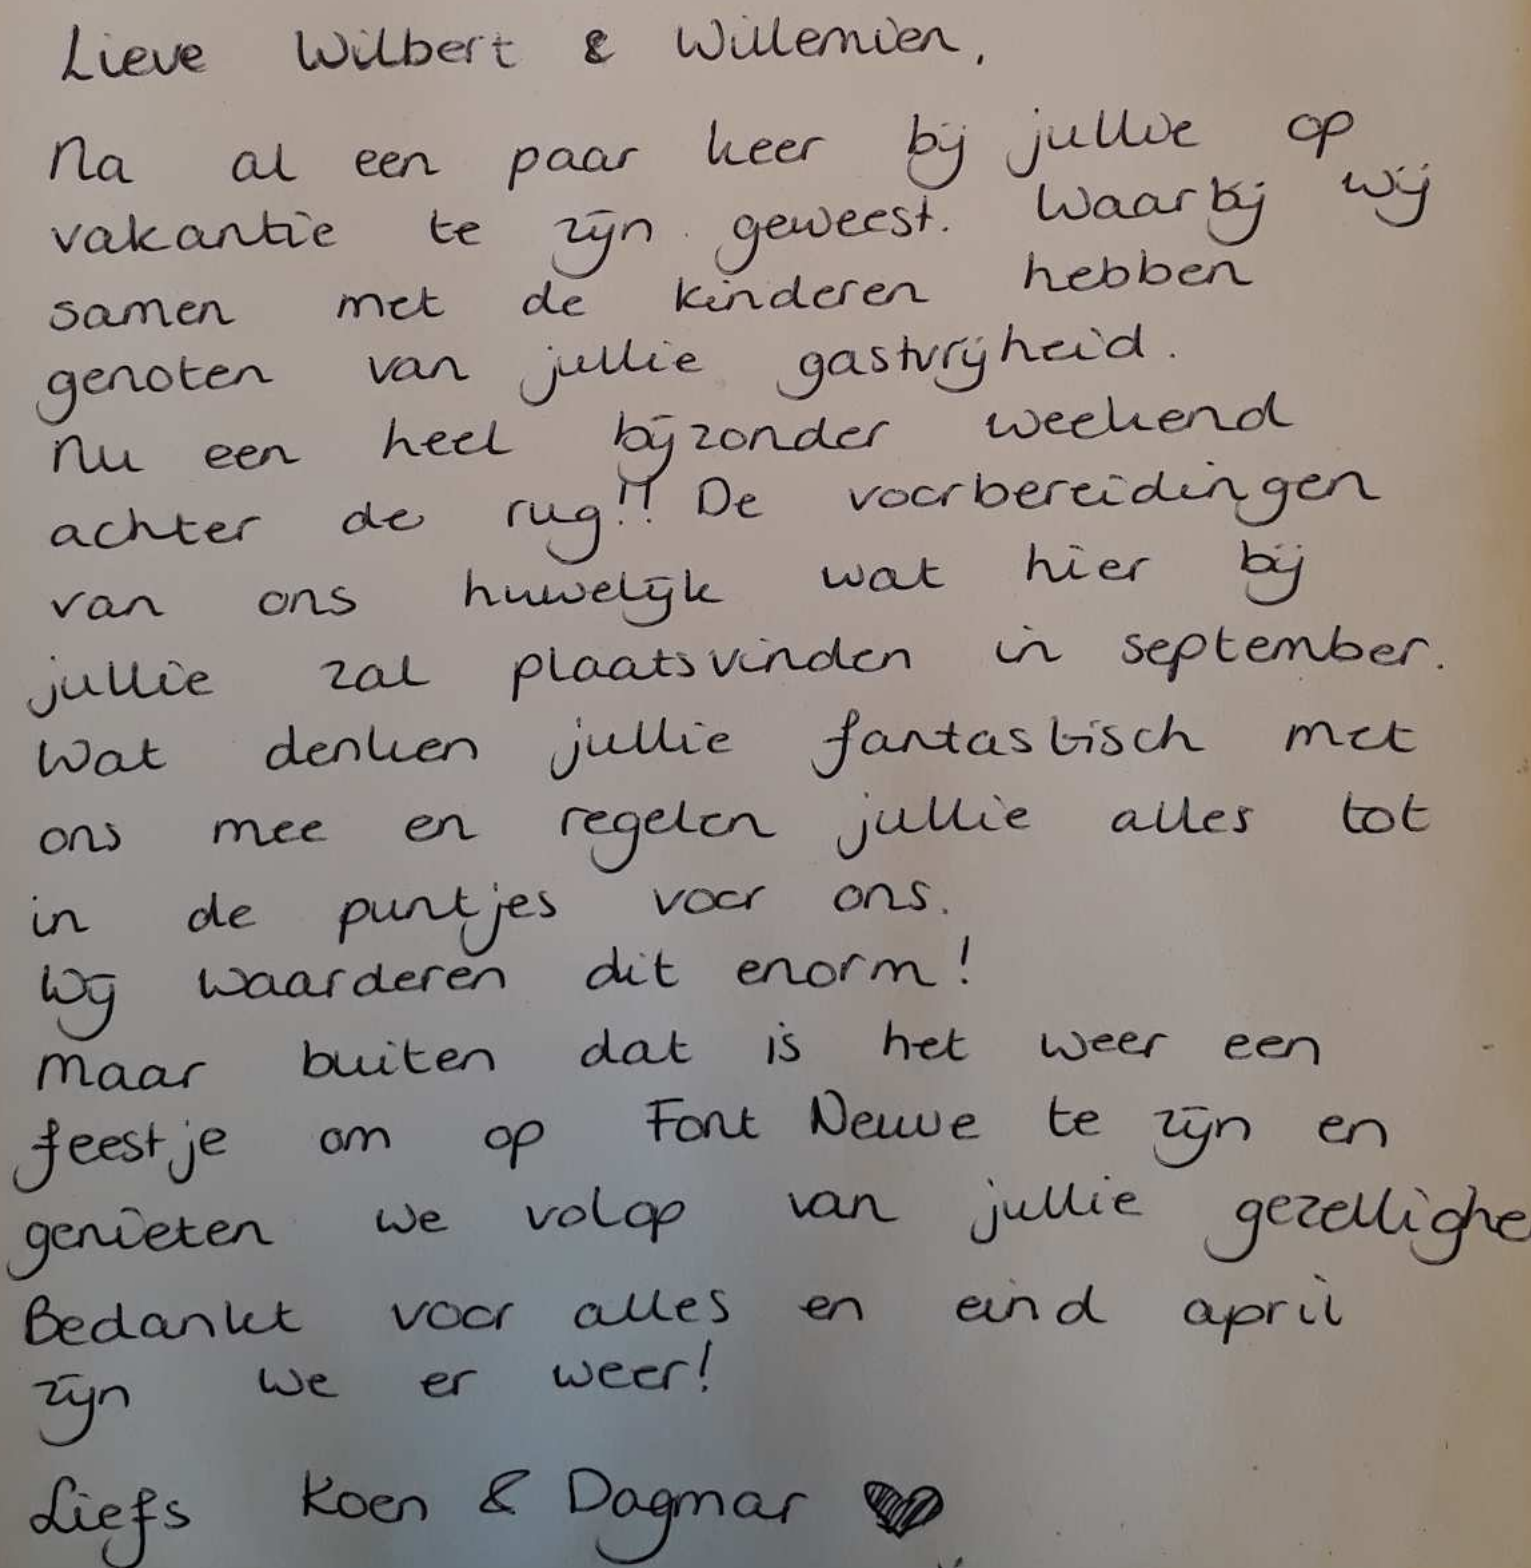 Lieve Wilbert & Willemien,
Na al een paar keer bij jullie op
vakantie te zijn geweest. Waarbij wij
samen met de kinderen hebben
genoten van jullie gastvrijheid.
Nu een heel bijzonder weekend
achter de rug!! De voorbereidingen
van ons huwelijk wat hier bij
jullie zal plaatsvinden in september.
Wat denken jullie fantastisch met
ons mee en regelen jullie alles tot
in de puntjes voor ons.
Wij waarderen dit enorm!
Maar buiten dat is het weer een
feestje om op Font Neuve te zijn en
genieten we volop van jullie gezellighe
Bedankt voor alles en eind april
zijn we er weer!
Liefs Koen & Dagmar ♥